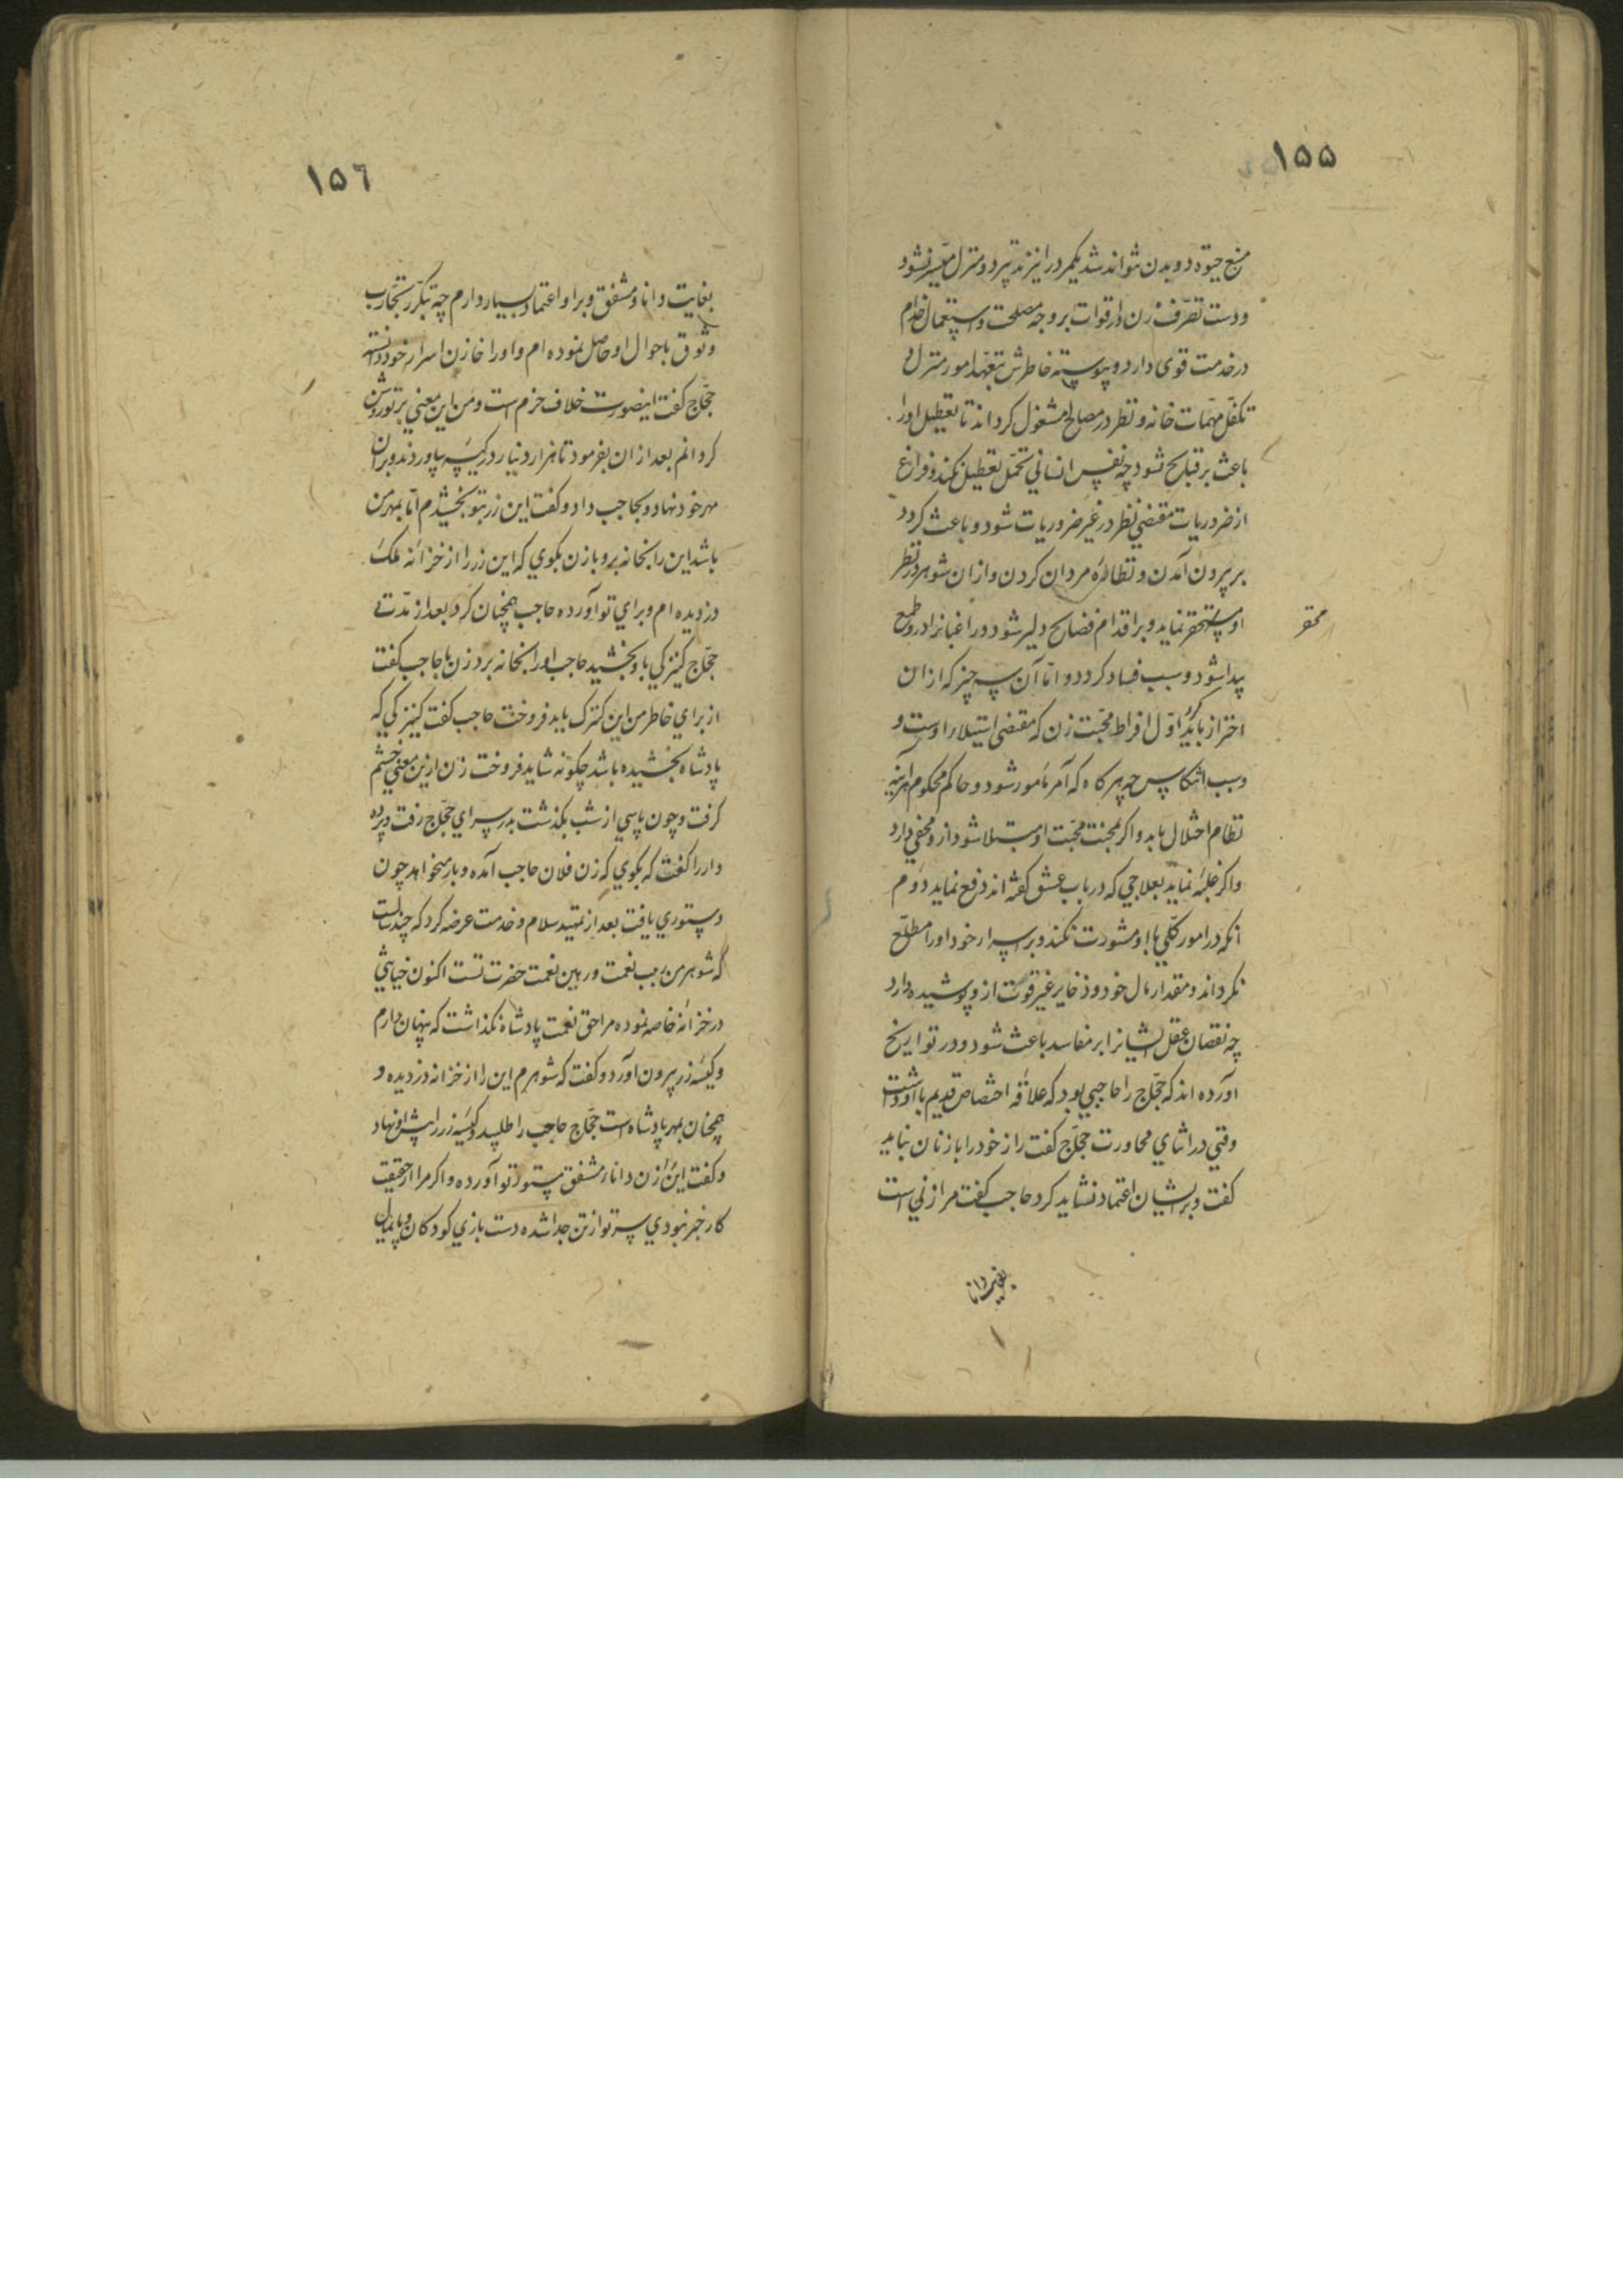 ۱۵۵
منبع حیوة دو بدن نتواند شد یکمرد را نیز تدبیر دو منزل میسر نشود
و دست تصرف زن در اقوات بر وجه مصلحت و استعمال خدام
در خدمت قوی دارد و پیوسته خاطرش بتعهد امور منزل و
تکفل مهمات خانه و نظر در مصالح مشغول کرداند تا تعطیل او را
باعث بر قبایح نشود چه نفس انسانی تحمل تعطیل نکند و فراغ
از ضروریات مقتضی نظر در غیر ضروریات شود و باعث کردد
بر بیرون آمدن و نظارهٔ مردان کردن و ازان شوهر در نظر
او مستحقر نماید و بر اقدام فضایح دلیر شود و راغبانرا درو طمع
محقر
پیدا شود و سبب فساد کردد و اما آن سه چیز که ازان
احتراز باید کرد اول افراط محبت زن که مقتضی استیلاء اوست و
و سبب انتکاس چه هر کاه که آمر مأمور شود و حاکم محکوم هراینه
نظام اختلال یابد و اکر بمحنت محبت او مبتلا شود ازو مخفی دارد
و اکر غلبه نماید بعلاجی که در باب عشق کفته اند دفع نماید دوم
آنکه در امور کلی با او مشورت نکند و بر اسرار خود او را مطلع
نکرداند و مقدار مال خود و ذخایر غیر قوت ازو پوشیده دارد
چه نقصان عقل ایشانرا بر مفاسد باعث شود و در تواریخ
آورده اند که حجاج را حاجبی بود که علاقهٔ اختصاص قدیم با او داشت
وقتی در اثنای محاورت حجاج کفت راز خود را با زنان نباید
کفت و بر ایشان اعتماد نشاید کرد حاجب کفت مرا زنی است
بغایت دانا
۱۵٦
بغایت دانا و مشفق و بر او اعتماد بسیار دارم چه بتکرر تجارب
وثوق باحوال او حاصل نموده ام و او را خازن اسرار خود دانسته
حجاج کفت اینصورت خلاف حزم است و من این معنی بر تو روشن
کردانم بعد از ان بفرمود تا هزار دینار در کیسه بیاوردند و بران
مهر خود نهاد و بحاجب داد و کفت این زر بتو بخشیدم اما بمهر من
باشد این را بخانه بر و با زن بکوی که این زر را از خزانه ملک
دزدیده ام و برای تو آورده حاجب همچنان کرد بعد از مدتی
حجاج کنیزکی باو بخشید حاجب او را بخانه برد زن با حاجب کفت
از برای خاطر من این کنیزک باید فروخت حاجب کفت کنیزکی که
پادشاه بخشیده باشد چکونه شاید فروخت زن ازین معنی خشم
کرفت و چون پاسی از شب بکذشت بدر سرای حجاج رفت و پرده
دار را کفت که بکوی که زن فلان حاجب آمده و بار میخواهد چون
دستوری یافت بعد از تمهید سلام و خدمت عرضه کرد که چند سالست
که شوهر من ربیب نعمت و رهین نعمت حضرت تست اکنون خیانتی
در خزانه خاصه نموده مرا حق نعمت پادشاه نکذاشت که پنهان دارم
و کیسه زر بیرون آورد و کفت که شوهرم این را از خزانه دزدیده و
همچنان بمهر پادشاه است حجاج حاجب را طلبید و کیسه زر را پیش او نهاد
و کفت این زن دانا و مشفق مستوره تو آورده و اکر مرا از حقیقت
کار خبر نبودی سر تو از تن جدا شده دست بازی کودکان و پایمال